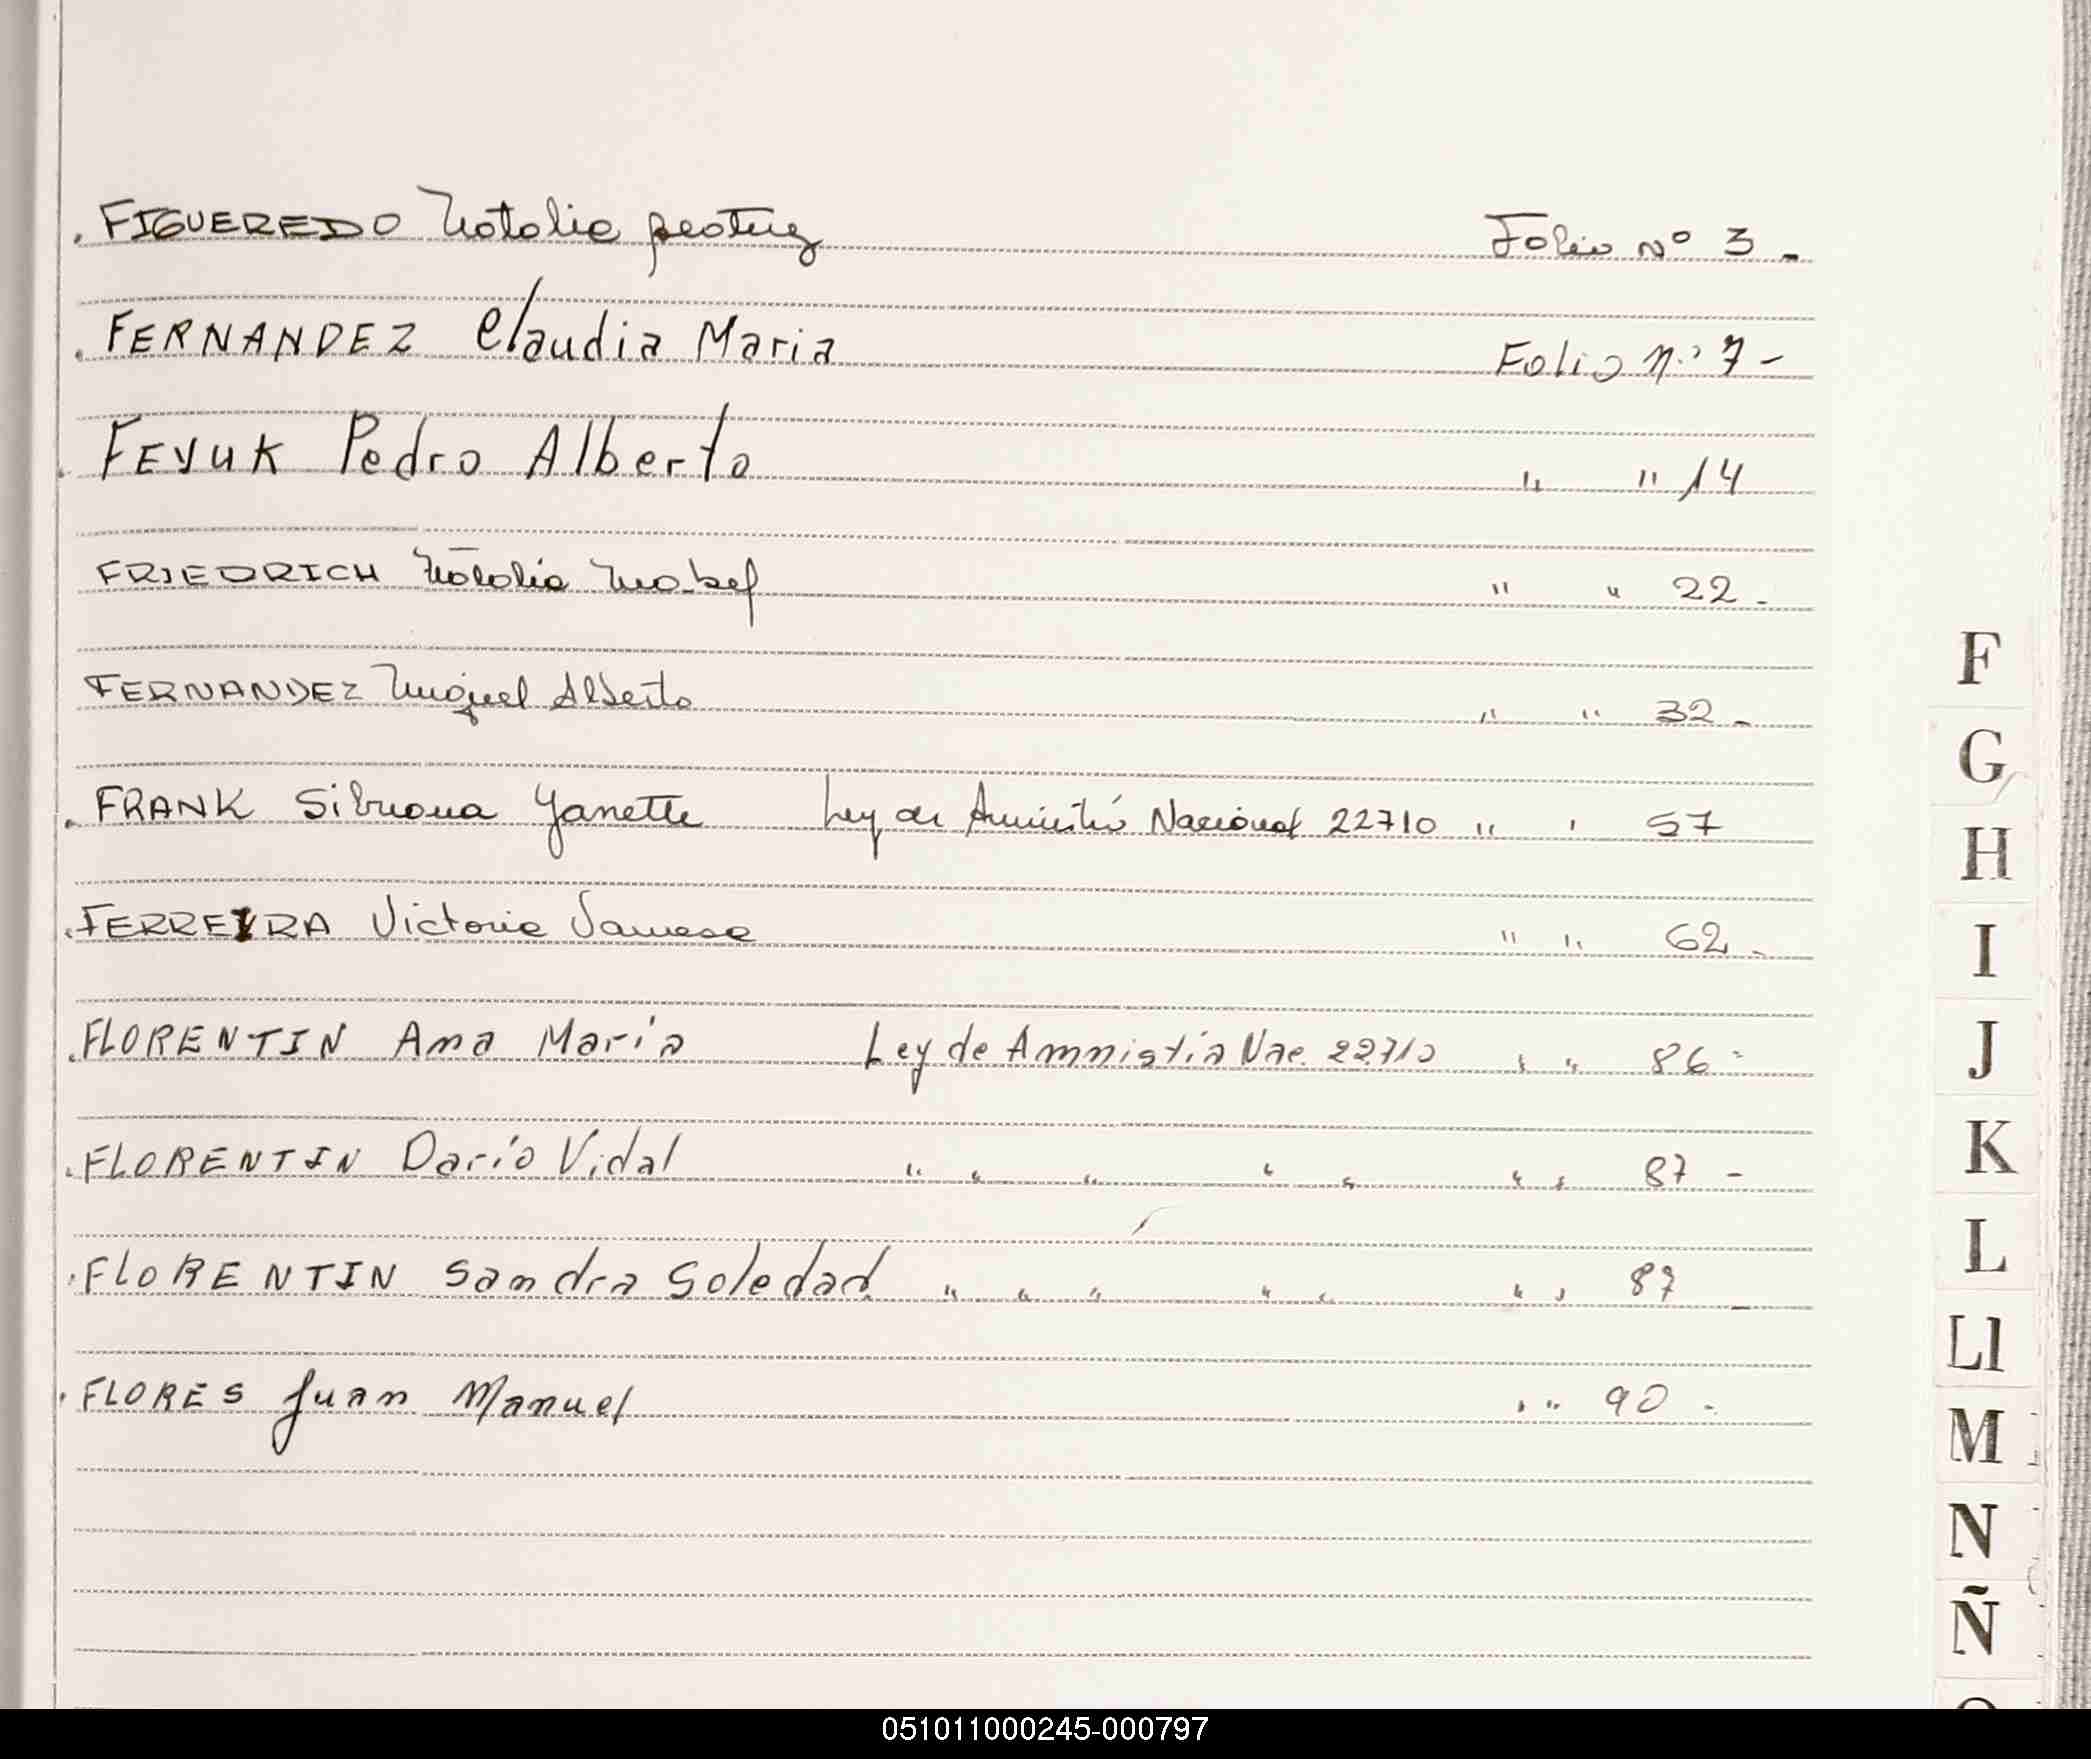 . FIGUEREDO Natalia Beatriz Folio Nº 3 -
. FERNANDEZ Claudia Maria Folio n.º 7 -
. FEVUK Pedro Alberto " " 14
FRIEDRICH Natalia Mabel " " 22 -
FERNANDEZ Miguel Alberto " " 32 -
. FRANK Silvana Yanette Ley de Amnistía Nacional 22710 " " 57
. FERREYRA Victoria Vanesa " " 62 -
. FLORENTIN Ana María Ley de Amnistía Nac. 22.710 " " 86 -
. FLORENTIN Darío Vidal " " " " " " " 87 -
. FLORENTIN Sandra Soledad " " " " " " " 87 -
. FLORES Juan Manuel " " 90 -
F
G
H
I
J
K
L
Ll
M
N
Ñ
051011000245-000797